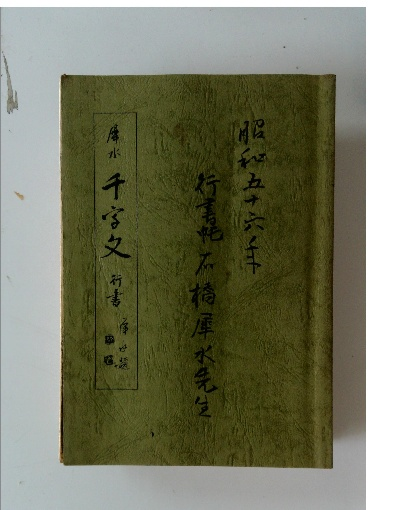 昭和五十六年
行書帖 石橋犀水先生
犀水
千字文 行書
犀水題